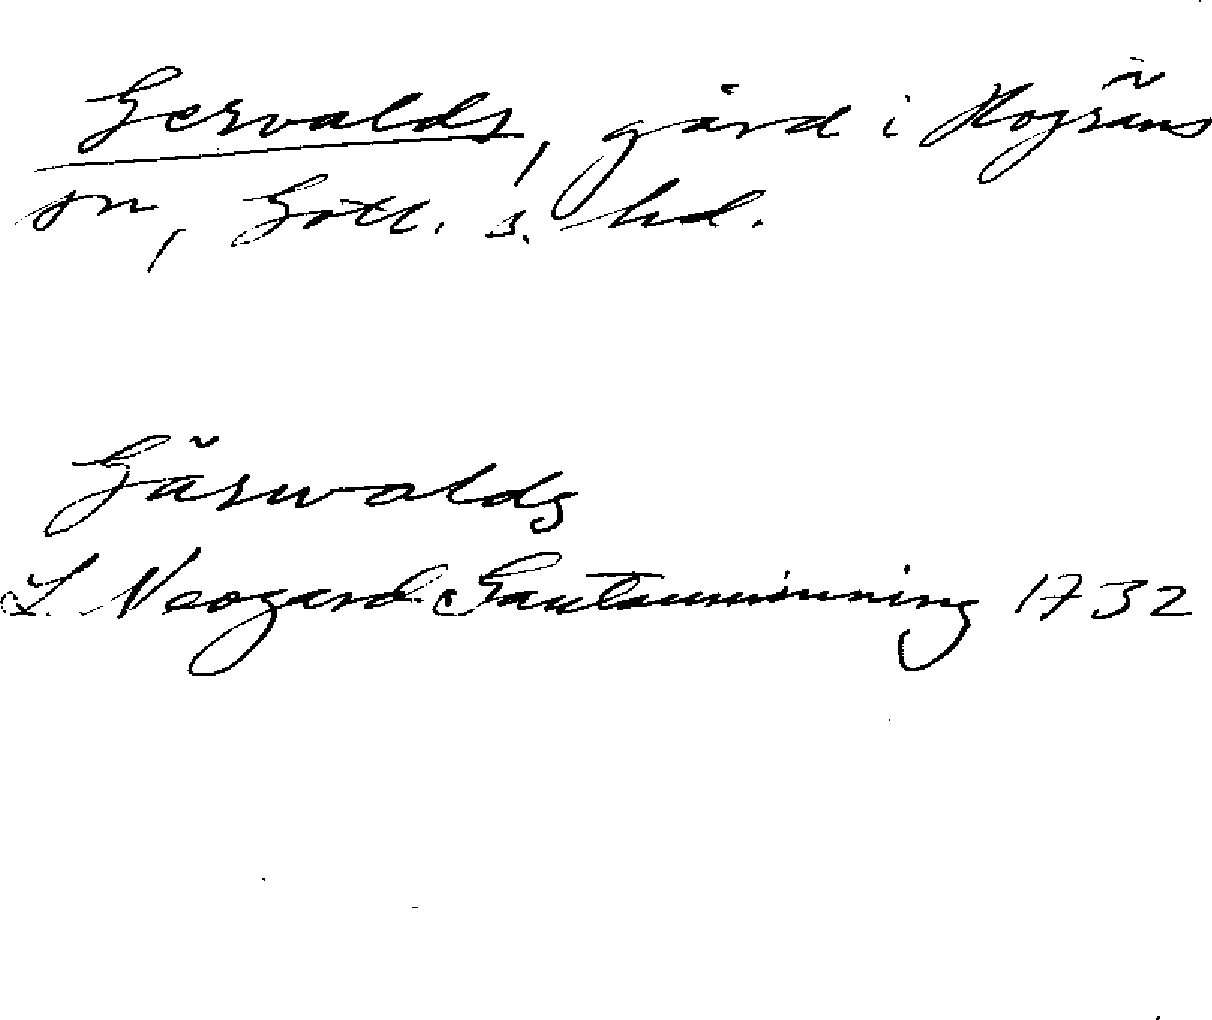 Gervalds, gård i Hogräns
sn, Gotl. s. hd.
Gärwalds
L. Neogard. Gautauminning 1732